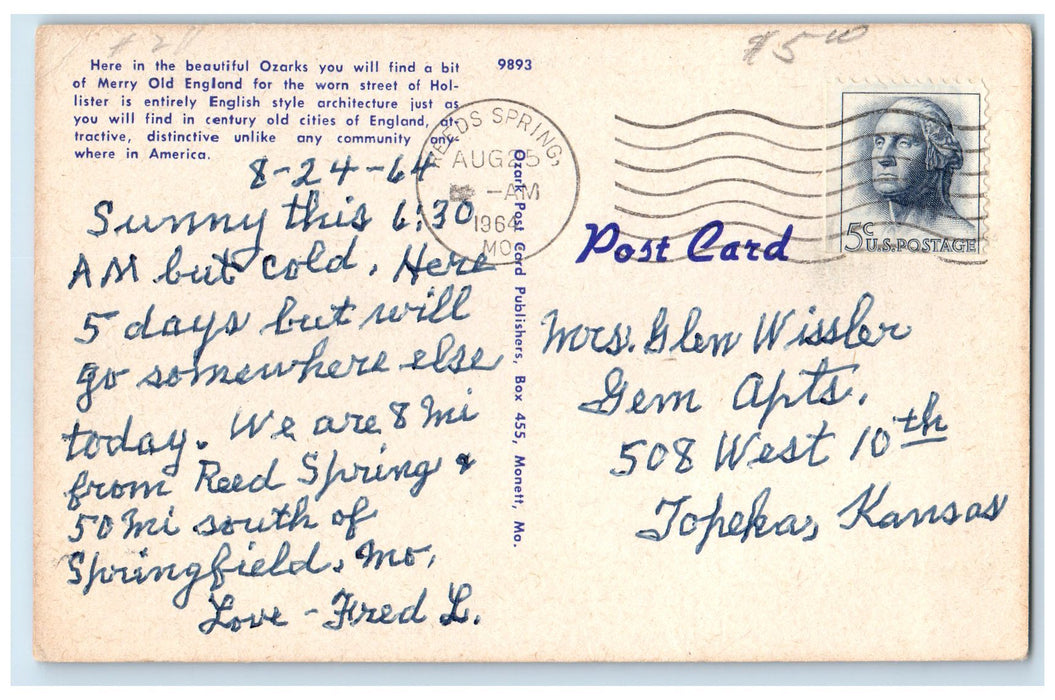 # 20
$5.00
Here in the beautiful Ozarks you will find a bit
of Merry Old England for the worn street of Hol-
lister is entirely English style architecture just as
you will find in century old cities of England, at-
tractive, distinctive unlike any community any-
where in America.
9893
8-24-64
Sunny this 6:30
AM but cold. Here
5 days but will
go somewhere else
today. We are 8 Mi
from Reed Spring &
50 Mi south of
Springfield, Mo,
Love - Fred L.
Ozark Post Card Publishers, Box 455, Monett, Mo.
REEDS SPRING,
AUG 25
-AM
1964
MO.
5c
U.S. POSTAGE
Post Card
Mrs. Glen Wissler
Gem Apts.
508 West 10th
Topeka, Kansas